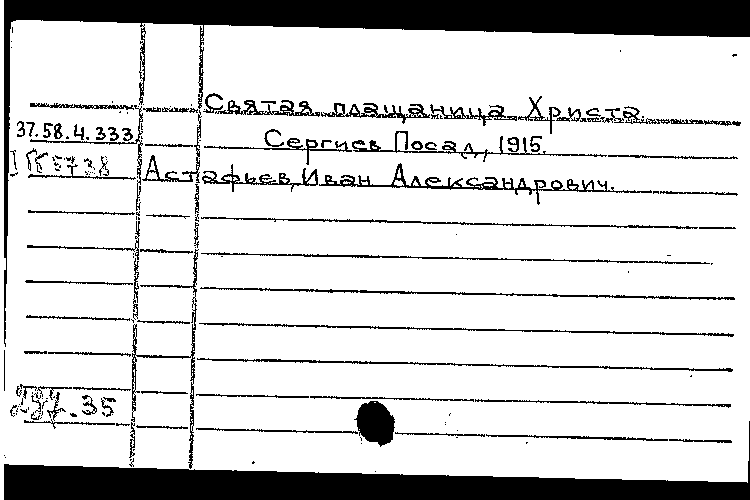 Святая плащаница Христа.
37.58.4.333. Сергиев Посад, 1915.
5738 Астафьев, Иван Александрович.
297.35